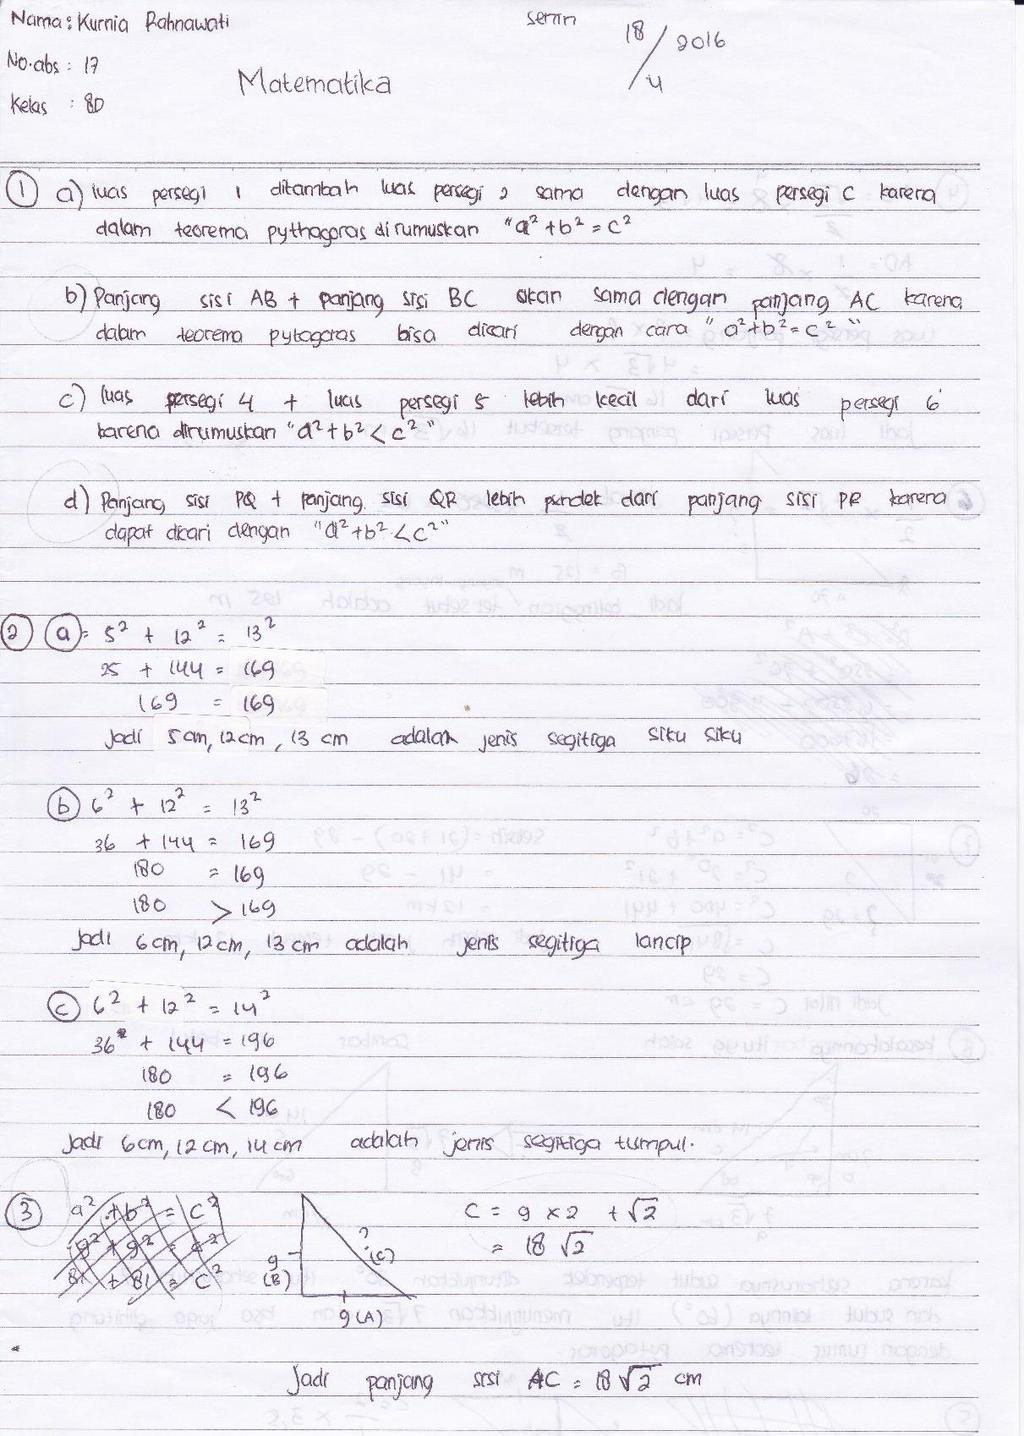 Nama : Kurnia Rahnawati
senin 18/4 2016
No.abs : 17
Matematika
Kelas : 8D
① a) luas persegi 1 ditambah luas persegi 2 sama dengan luas persegi C karena
dalam teorema pythagoras dirumuskan "a² + b² = c²
b) Panjang sisi AB + panjang sisi BC akan sama dengan panjang AC karena
dalam teorema pytagoras bisa dicari dengan cara "a²+b²=c²"
c) luas persegi 4 + luas persegi 5 lebih kecil dari luas persegi 6
karena dirumuskan "a²+b²<c²"
d) Panjang sisi PQ + panjang sisi QR lebih pendek dari panjang sisi PR karena
dapat dicari dengan "a²+b²<c²"
② ⓐ = 5² + 12² = 13²
25 + 144 = 169
169 = 169
Jadi 5 cm, 12 cm, 13 cm adalah jenis segitiga siku siku
ⓑ 6² + 12² = 13²
36 + 144 = 169
180 = 169
180 > 169
Jadi 6 cm, 12 cm, 13 cm adalah jenis segitiga lancip
ⓒ 6² + 12² = 14²
36 + 144 = 196
180 = 196
180 < 196
Jadi 6 cm, 12 cm, 14 cm adalah jenis segitiga tumpul.
③ a² + b² = c²
9² + 9² = c²
81 + 81 = c²
9 (B)
? (C)
9 (A)
C = 9 x 2 + √2
= 18 √2
Jadi panjang sisi AC = 18 √2 cm